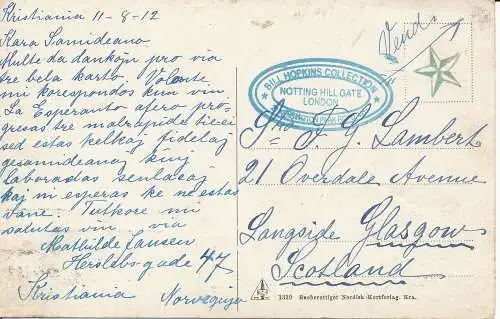 Kristiania 11-8-12
Kara Samideano
Multe da dankojn pro via
tre bela karto, Volonte
mi korespondos kun vin.
La Esperanto afero pro-
gresas tre malrapide tie ci
sed estas kelkaj fidelaj
gesamideanoj kiuj
laboradas senlacaj
kaj ni esperas ke ne estas
vane. Tutkore mi
salutas vin. via
Mathilde Jansen
Herslebsgade 47
Kristiania Norvegujo
BILL HOPKINS COLLECTION
NOTTING HILL GATE
LONDON
J. G. Lambert
21 Overdale Avenue
Langside Glasgow
Scotland
1339 Eneberettiget Nordisk Kortforlag. Kra.